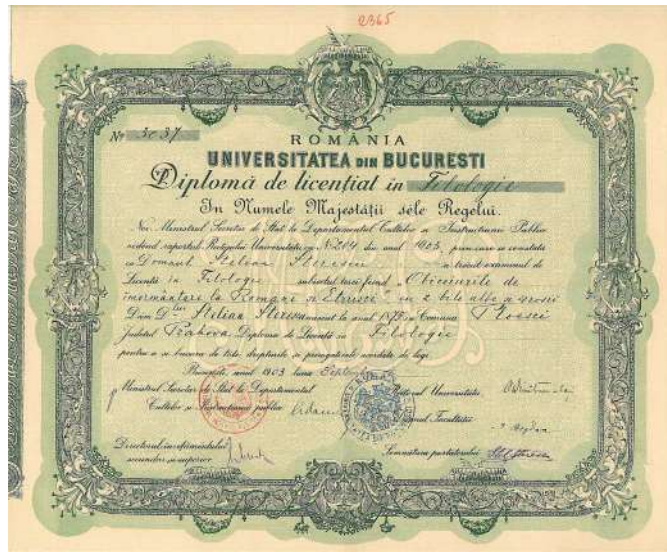 2365
No 3037
ROMÂNIA
UNIVERSITATEA DIN BUCURESTI
Diplomă de licențiat în Filologie
In Numele Majestății sèle Regelui.
Noi Ministrul Secretar de Stat la Departamentul Cultelor si Instructiunei Publice
vĕdend raportul Rectorului Universitatei cu No 204 din anul 1903, prin care se constată
ca Domnul Stelian a trecut examenul de
Licență in Filologie subiectul tesei fiind „Obiceiurile de
inmormântare la Romani si Etrusci" cu 2 bile albe a rosii
Dăm D-lui Stelian născut la anul 1875 in Comuna Ploesci
Judetul Prahova Diploma de Licență in Filologie
pentru a se bucura de tote drepturile si prerogativele acordate de legi.
Bucuresti, anul 1903 luna Septembre
Ministrul Secretar de Stat la Departamentul Rectorul Universitatei
Cultelor si Instructiunei publice Decanul Facultatei
Directorul
secundar si superior Semnătura purtătorului